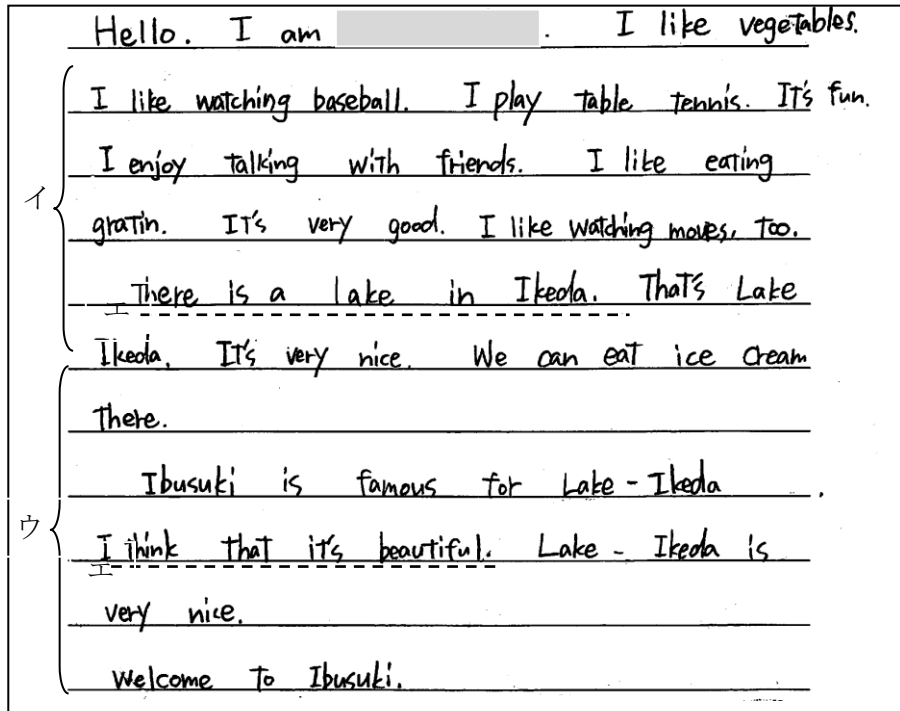 Hello. I am . I like vegetables.
I like watching baseball. I play table tennis. It's fun.
I enjoy talking with friends. I like eating
イ
gratin. It's very good. I like watching moves, too.
There is a lake in Ikeda. That's Lake
エ
Ikeda. It's very nice. We can eat ice cream
there.
Ibusuki is famous for Lake-Ikeda.
ウ
I think that it's beautiful. Lake-Ikeda is
エ
very nice.
Welcome to Ibusuki.